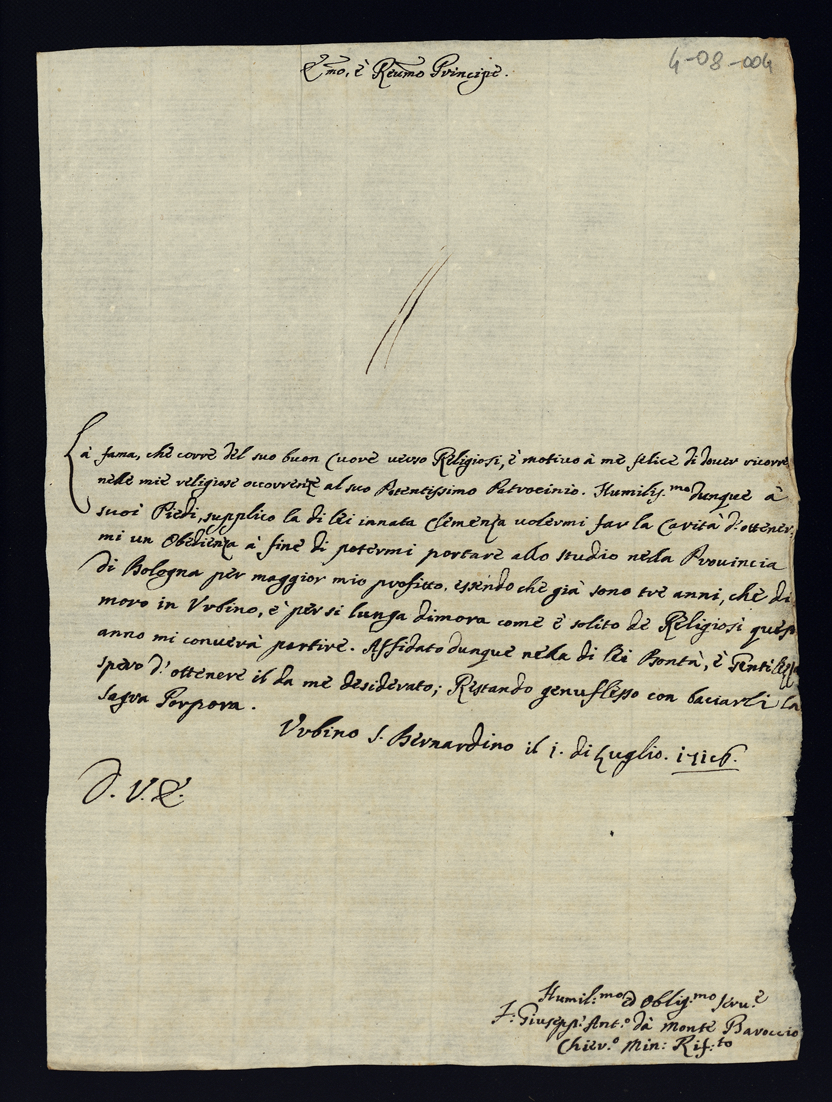 Emo, è Reumo Principe.
4-08-004
Là fama, chè corrè del suo buon Cuorè uerso Religiosi, è motiuo à me felicè di douer ricorre
nellè miè religiosè occorrenzè al suo Potentissimo Patrocinio. Humilis.mo dunquè à
suoi Piedi, supplico la di lèi innata Clemenza uolermi far la Carità d'ottener
mi un Obèdienza à finè di potermi portarè allo studio nella Prouincia
di Bologna per maggior mio profitto, essèndo chè già sono trè anni, chè di
moro in Vrbino, è pèr si lunga dimora comè è solito dè Religiosi
anno mi conuerà partirè. Affidato dunquè nella di lèi Bontà, è
spero d'ottenerè il da mè dèsidèrato; Rèstando genuflèsso con baciarli la
sagra Porpora.
Vrbino S. Bèrnardino il 1. di Luglio. 1716.
D. V. E.
Humil:mo ed Oblig:mo Seru.è
F. Giusepp: Ant.o dà Montè Baroccio
Chièr.o Min: Rif:to